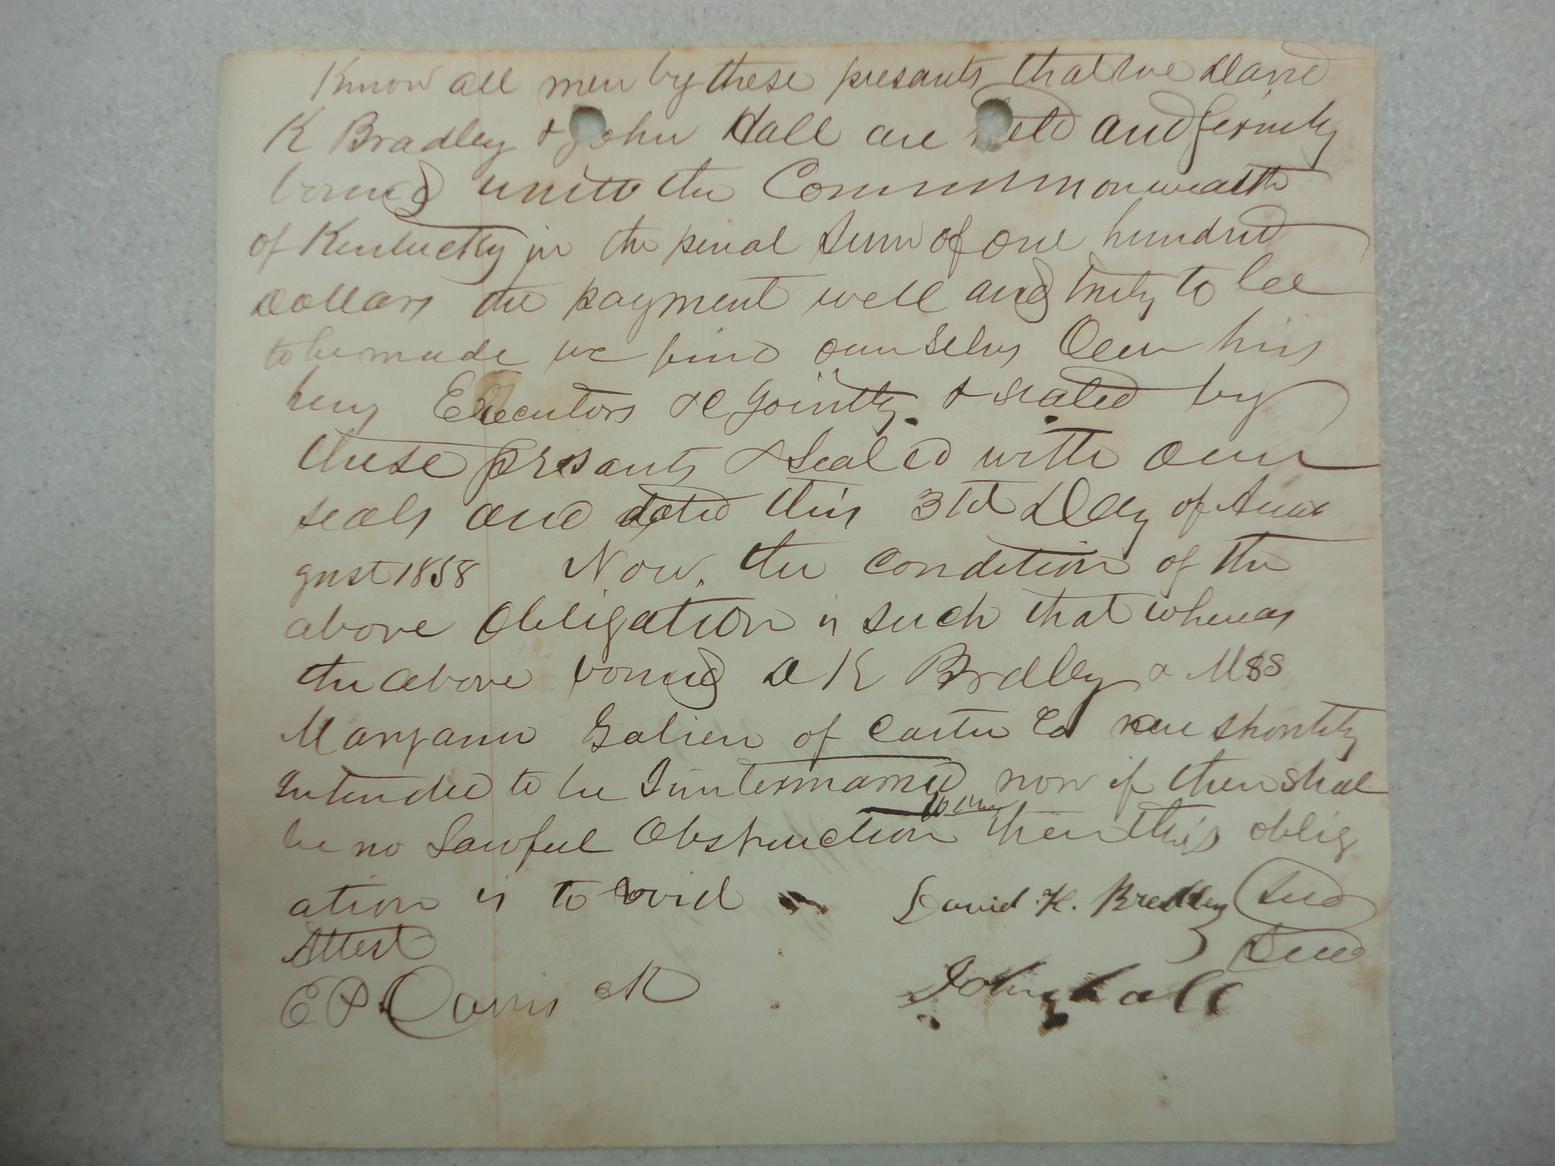 Know all men by these presants that we David
K Bradley & John Hall are held and firmly
bound unto the Commonwealth
of Kentucky in the penal Sum of one hundred
Dollars the payment well and truly to be
to be made we bind ourselvs Our hirs
Executors &c Jointly & by
these presants & Sealed with our
seals and dated this 3td Day of Auu
gust 1858 Now, the condition of the
above Obligation is such that whereas
the above bound D K Bradley & Mss
Maryann Galien of Carter Co are shortly
Intended to be Inntermarried now if there shal
be no Lawful Obstruction then this oblig
ation is to void David K. Bradley Seal
Attest Seal
E P Davis clk John hall